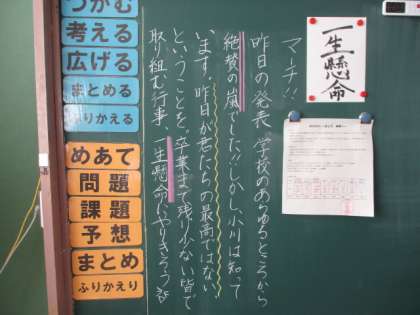 一生懸命
マーチ!!
昨日の発表、学校のあらゆるところから
絶賛の嵐でした!!しかし、小川は知って
います。昨日が君たちの最高ではない
ということを。卒業まで残り少ない皆で
取り組む行事、一生懸命にやりきろうぜ
つかむ
考える
広げる
まとめる
ふりかえる
めあて
問題
課題
予想
まとめ
ふりかえり